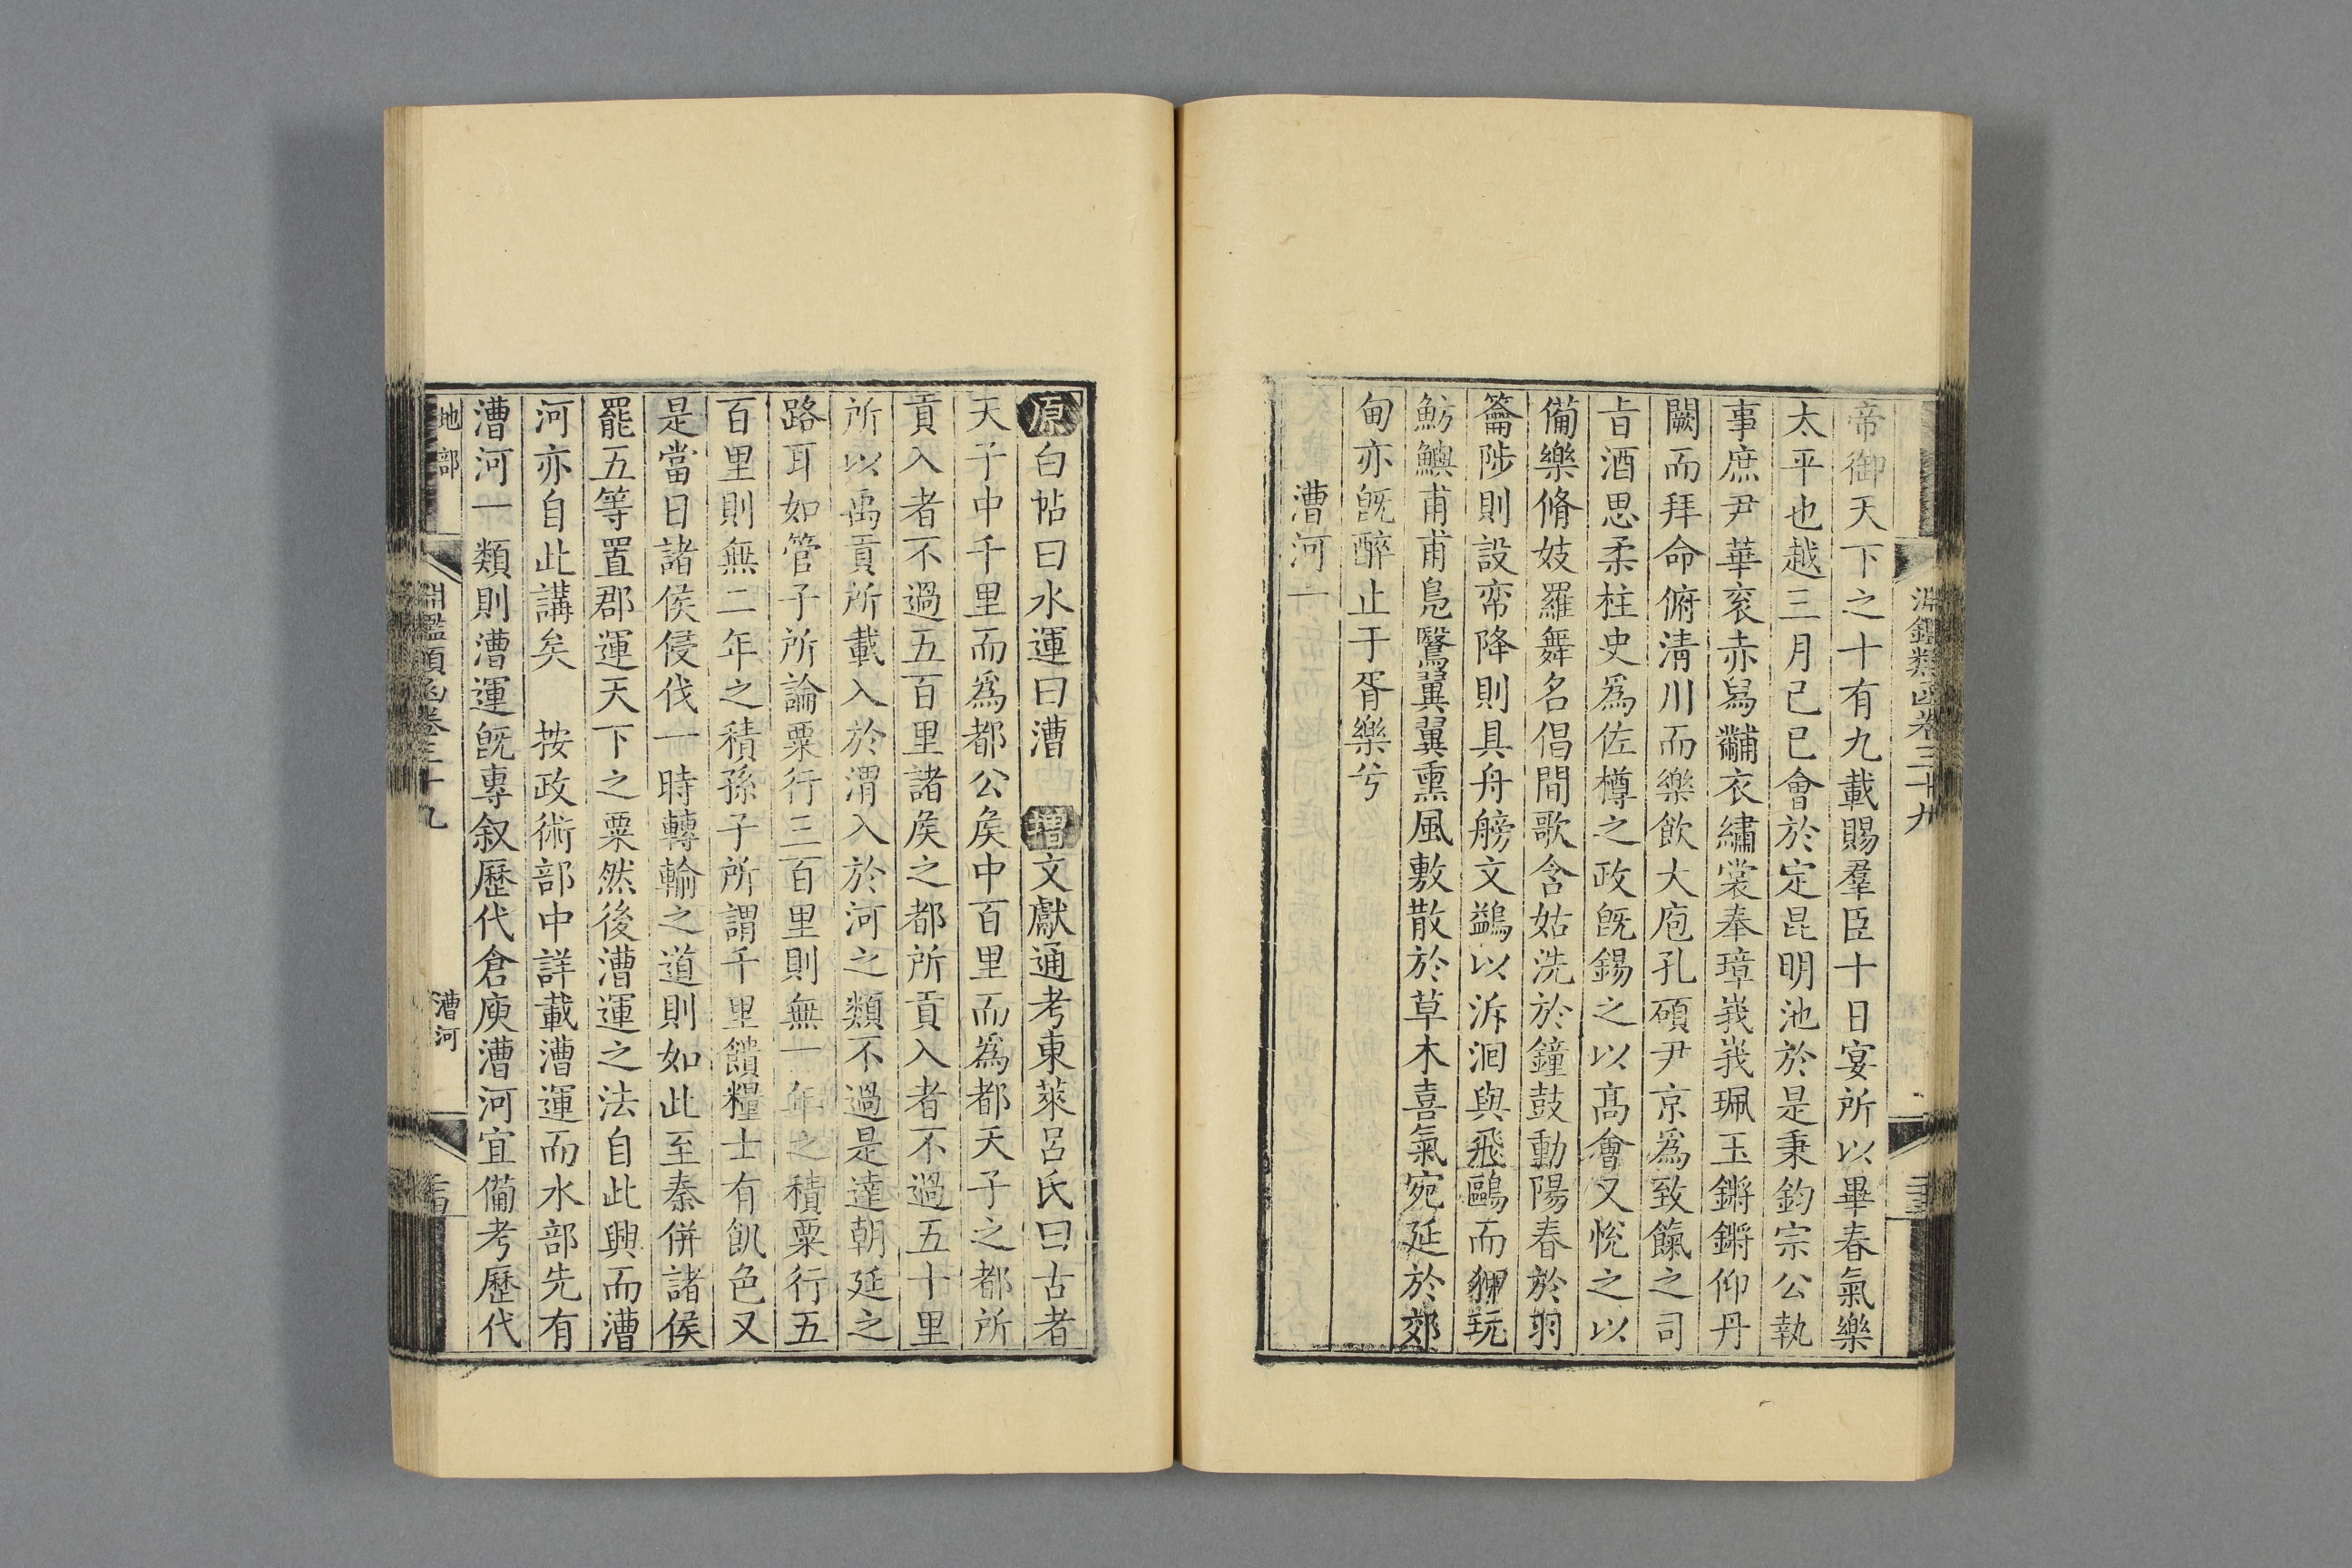 淵鑑類函卷三十九
帝御天下之十有九載賜羣臣十日宴所以畢春氣樂
太平也越三月己巳會於定昆明池於是秉鈞宗公執
事庶尹華衮赤舄黼衣繡裳奉璋峩峩珮玉鏘鏘仰丹
闕而拜命俯淸川而樂飲大庖孔碩尹京爲致餼之司
旨酒思柔柱史爲佐樽之政旣錫之以高會又悅之以
備樂脩妓羅舞名倡間歌含姑洗於鐘鼓動陽春於羽
籥陟則設帟降則具舟艕文鷁以泝洄與飛鷗而狎玩
魴鱮甫甫鳧鷖翼翼熏風敷散於草木喜氣宛延於郊
甸亦旣醉止于胥樂兮
漕河一
原白帖曰水運曰漕　增文獻通考東萊呂氏曰古者
天子中千里而爲都公矦中百里而爲都天子之都所
貢入者不過五百里諸矦之都所貢入者不過五十里
所以禹貢所載入於渭入於河之類不過是達朝廷之
路耳如管子所論粟行三百里則無一年之積粟行五
百里則無二年之積孫子所謂千里饋糧士有飢色又
是當日諸侯侵伐一時轉輸之道則如此至秦併諸侯
罷五等置郡運天下之粟然後漕運之法自此興而漕
河亦自此講矣　按政術部中詳載漕運而水部先有
漕河一類則漕運旣專叙歷代倉庾漕河宜備考歷代
地部　淵鑑類函卷三十九　漕河